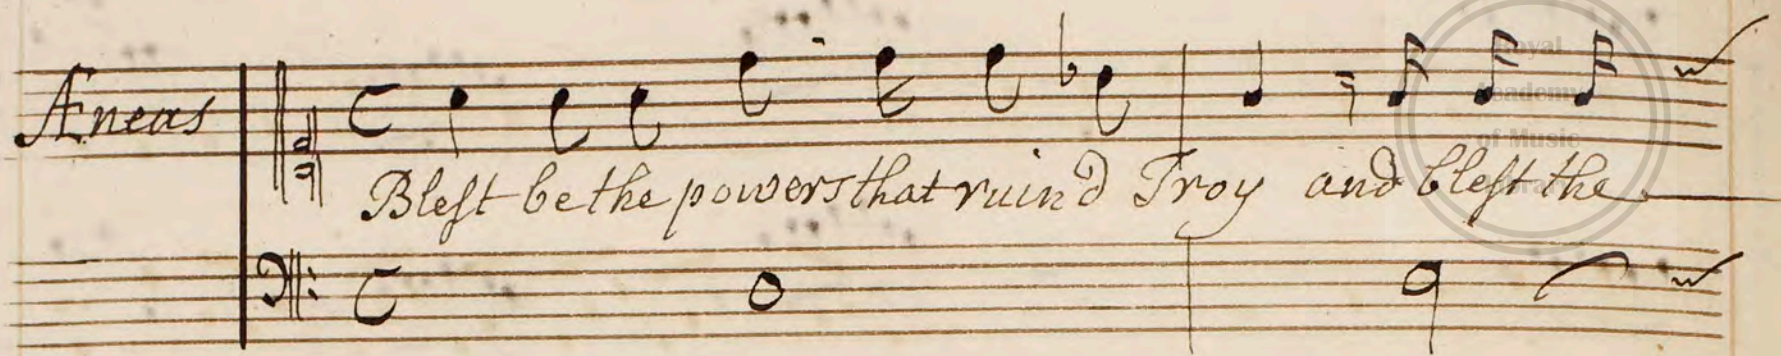 Æneas
Blest be the powers that ruin'd Troy and blest the
Royal
Academy
of Music
Library